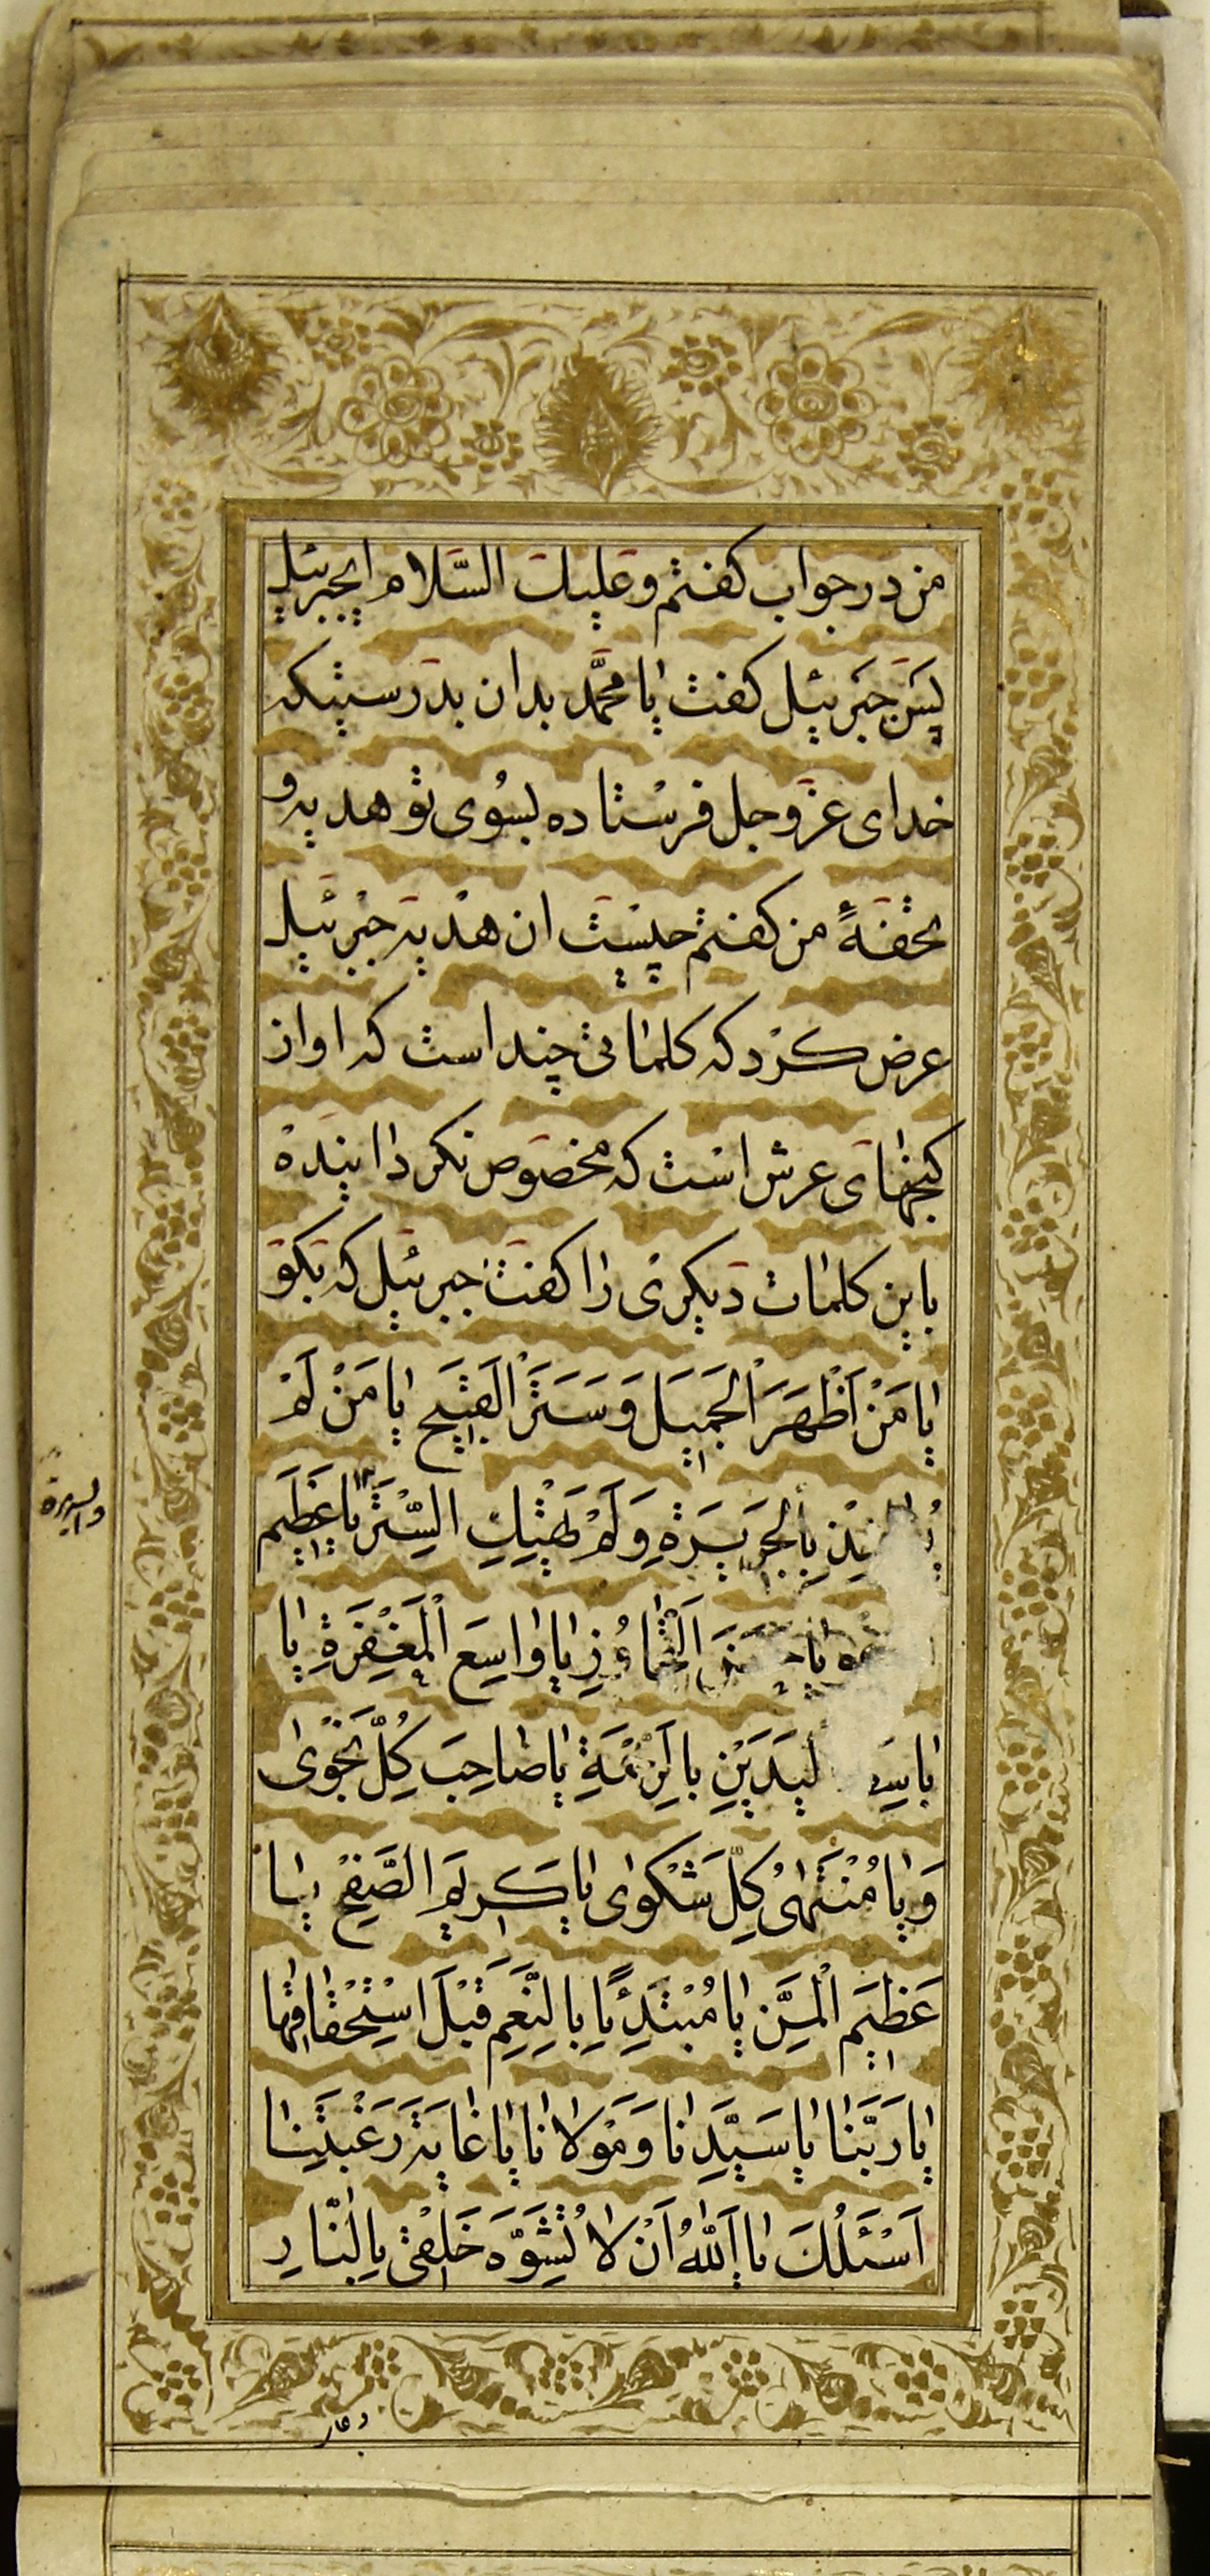 من در جواب کفتم وعلیك السَّلام ایجبرئیل
پس جبرئیل کفت یا محمَّد بدان بدرستیکه
خدای عزوجل فرستاده بسُوی تو هدیه و
تحفهٔ من کفتم چیست ان هدیه جبرئیل
عرض کرد که کلماتی چند است که او از
کنجهای عرش است که مخصوص نکردانیده
باین کلمات دیکری را کفت جبرئیل که بکو
یا مَنْ اَظْهَرَ الْجَمیلَ وَ سَتَرَ الْقَبیحَ یا مَنْ لَمْ
بِالْجَریرَةِ وَ لَمْ یَهْتِكِ السِّتْرَ یا عَظیمَ
یا التَّجاوُزِ یا واسِعَ الْمَغْفِرَةِ یا
الْیَدَیْنِ بِالرَّحْمَةِ یا صاحِبَ کُلِّ نَجْوی
وَ یا مُنْتَهی کُلِّ شَکْوی یا کَریمَ الصَّفْحِ یا
عَظیمَ الْمَنِّ یا مُبْتَدِئًا بِالنِّعَمِ قَبْلَ اسْتِحْقاقِها
یا رَبَّنا یا سَیِّدَنا وَ مَوْلانا یا غایَةَ رَغْبَتِنا
اَسْئَلُكَ یا اَللّٰهُ اَنْ لا تُشَوِّهَ خَلْقی بِالنّارِ